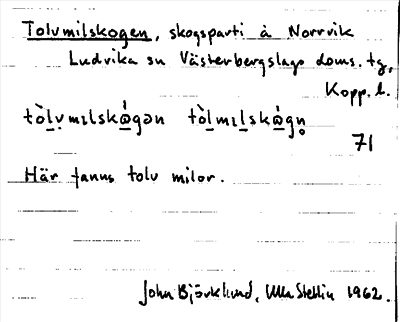 Tolvmilskogen, skogsparti å Norrvik
Ludvika sn Västerbergslags doms. tg,
Kopp. l.
tòl̲v̩mɩlskὼ̲gən tòl̲mɩl̲skὼ̲gn̥
71
Här fanns tolv milor.
John Björklund, Ulla Stellin 1962.